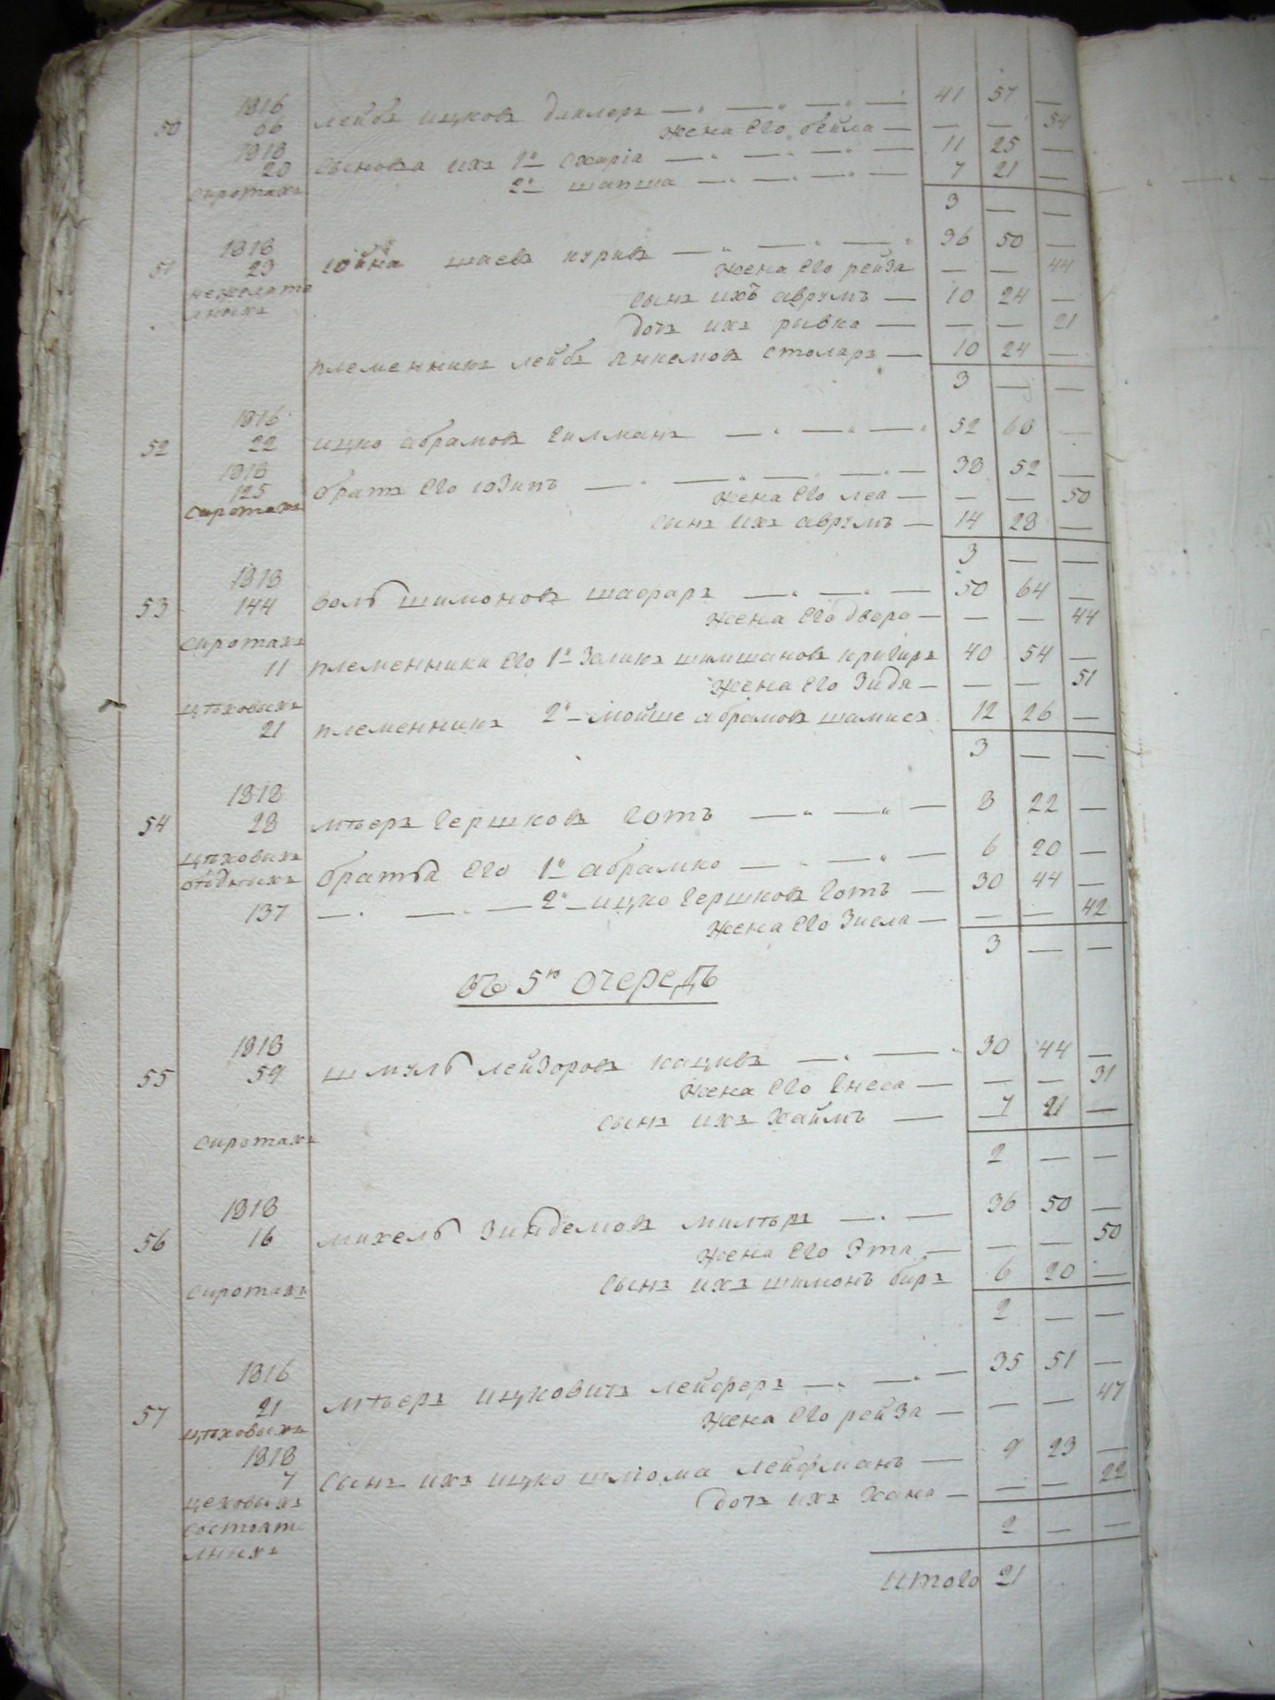 1816
50 66 лейбъ ицковъ — — — — 41 57 —
жена его бейла — — — 54
1818
20 сыновья ихъ 1й схарія — — — — 11 25 —
сиротахъ 2й шапша — — — — 7 21 —
3 — —
1818
51 23 юйна шаевъ — — — 36 50 —
жена его рейза — — 44
сынъ ихъ аврумъ — 10 24 —
дочь ихъ ривка — — — 21
племенникъ лейбъ янкемовъ столаръ — 10 24 —
3 — —
1816
52 22 ицко абрамовъ гилманъ — — — 52 68 —
1818
125 братъ его юзипъ — — — — 38 52 —
сиротахъ жена его леа — — — 50
сынъ ихъ аврумъ — 14 28 —
3 — —
1818
53 144 волѣ шимоновъ шафраръ — — — 50 64 —
жена его двера — — — 44
сиротахъ
11 племенники его 1й Зеликъ шимшановъ кригиръ 40 54 —
жена его Зидя — — — 51
цѣховыхъ
21 племенникъ 2й — мойше абрамовъ шамисъ 12 26 —
3 — —
1818
54 28 мѣеръ гершковъ готъ — — — 8 22 —
цѣховыхъ
бѣдныхъ братья его 1й абрамко — — — 6 20 —
137 — — — 2й — ицко гершковъ готъ — 30 44 —
жена его Зисла — — — 42
3 — —
въ 5ю очередь
1818
55 59 шмуль лейзоровъ кацивъ — — 30 44 —
жена его гнеса — — — 31
сынъ ихъ хаймъ — 7 21 —
сиротахъ
2 — —
1818
56 16 михель Зинделовъ милтъръ — — 36 50 —
жена его Эта — — — 50
сиротахъ сынъ ихъ шимонъ биръ 6 20 —
2 — —
1816
57 21 мѣеръ ицковичъ лейферъ — — — 35 51 —
цѣховыхъ жена его рейза — — — 47
1818
7 сынъ ихъ ицко шліома лейфманъ — 9 23 —
цеховыхъ дочь ихъ хана — — — 22
состояте
льныхъ 2 — —
итого 21